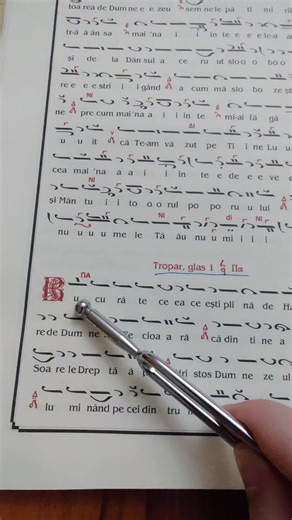 toa rea de Dum ne e e zeu sem ne le pă ti mi ri
tră ă ăn sa mai 'na i i in te e e e le a
și de la Dăn sul a ce ru ut slo o bo o
re e e e stri i i gând a cum mă slo bo ze ști
ne pre cum mai 'na a i i in te mi-ai fă gă
u u it că Te-am vă zut pe Ti i ne Lu u
cea mai 'na a a i i in te e de e e ve e
și Mân tu i i to o o rul po po ru lu i
nu u u u me le Tă ău nu u mi i i i
Tropar, glas I Πα
ΠΑ
B u cu ră te ce ea ce ești pli nă de Ha
re de Dum ne cioa a ră că din ti ne a
Soa re le Drep tă ă tri stos Dum ne ze ul
lu mi nând pe cei din tru în